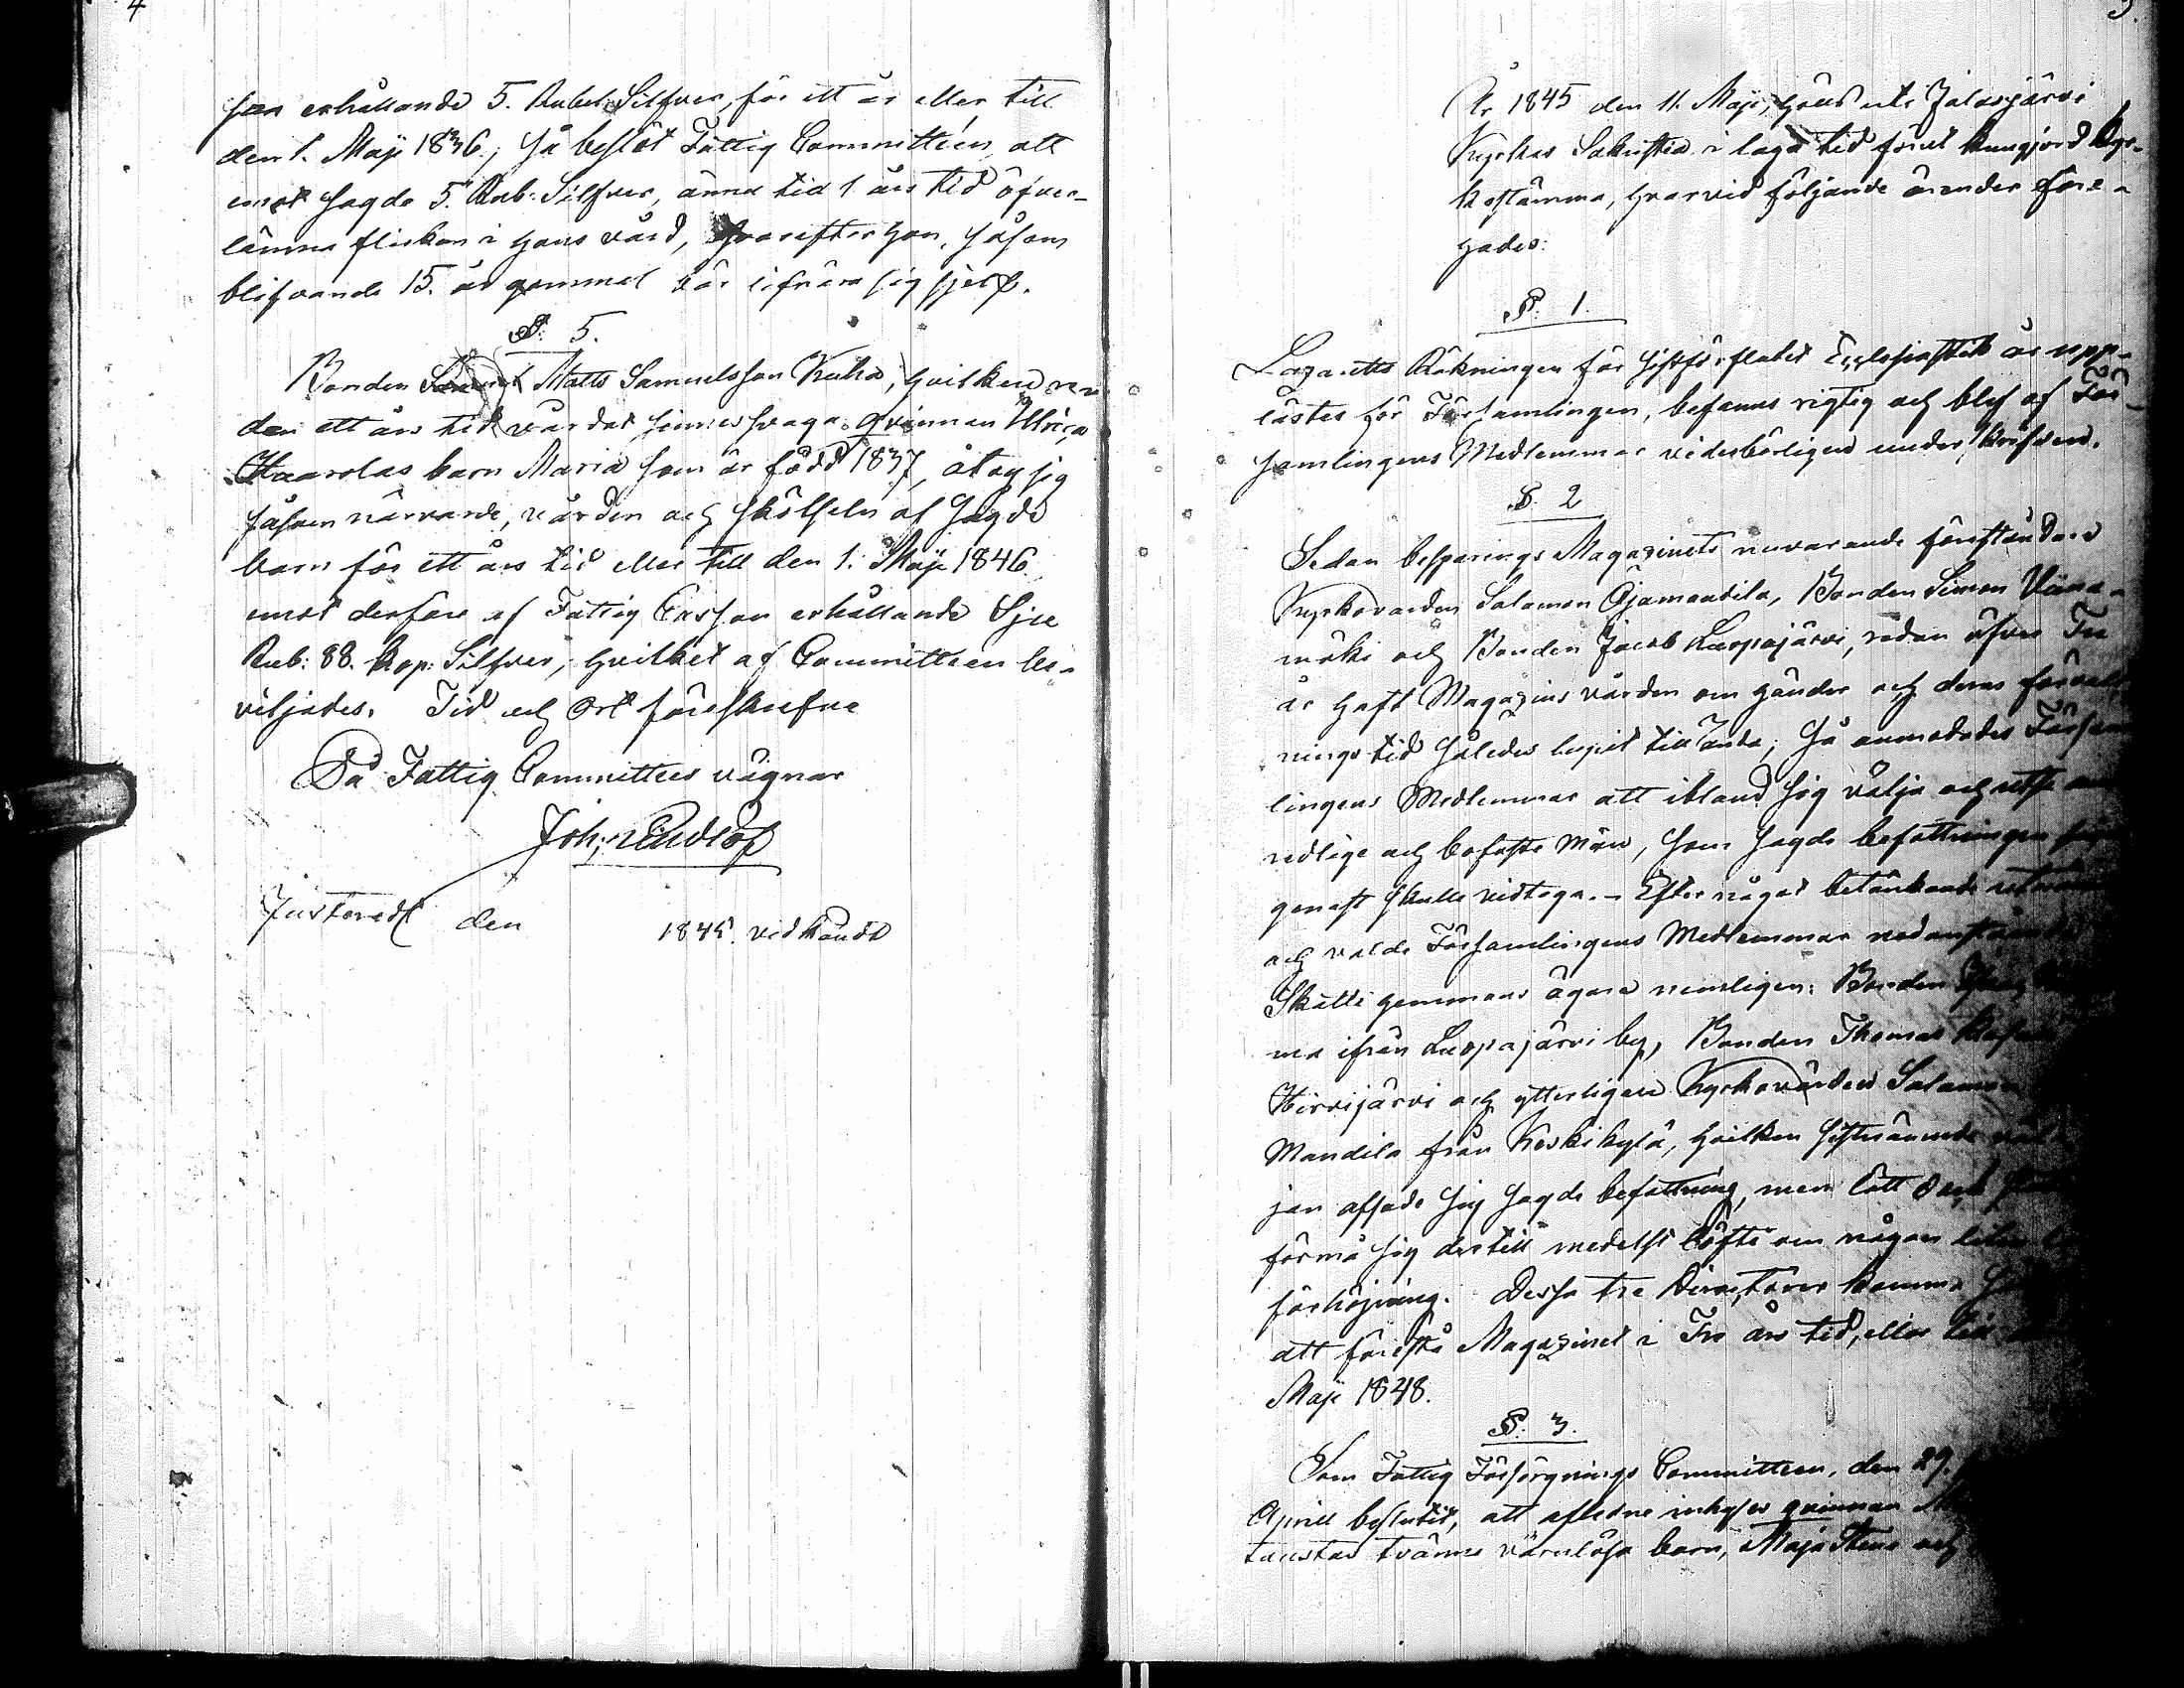 4
erhållande 5. Rubel Silfver, för ett år eller till
den 1. Maji 1836; så beslöt Fattig Committéen, att
emot sagde 5. Rub: Silfver, ännu til 1 års tid öfver-
lämna flickan i hans vård, hvarefter hon, såsom
blifvande 15. år gammal bör lifnära sig sjelf.
§. 5.
Bonden Matts Samuelsson Kuha, hvilken
den ett års tid vårdat sinnessvaga qvinnan Ulrica
Haarolas barn Maria som är född 1837, åtog sig
såsom närvarande, vården och skötseln af sagde
barn för ett års tid eller till den 1. Maji 1846
emot derföre af Fattig Cassan erhållande Sju
Rub: 88. kop: Silfver, hvilket af Committéen be-
viljades. Tid och Ort föreskrefne
På Fattig Committées vägnar
Joh:
Justeradt den 1845. vidkändt
År 1845 den 11. Maji, höls uti Jalasjärvi
Kyrkas Sakristia i laga tid förut kungjord kyr-
kostämma, hvarvid följande ärender före-
hades:
§. 1.
Lazaretts Räkningen för sistförflutet Ecclesiastik år upp-
lästes för Församlingen, befanns rigtig och blef af För-
samlingens Medlemmar vederbörligen underskrifven.
§. 2
Sedan besparings Magazinets nuvarande föreståndare
Kyrkovärden Salomon Ojamandila, Bonden Simon
mäki och Bonden Jacob Luopajärvi, redan öfver Tre
år haft Magazins vården om händer och deras
nings tid således lupit till ända; Så anmodades
lingens Medlemmar att ibland sig välja och utse
redlige och bofaste män, som sagde befattningen
genast skulle vidtaga. – Efter något betänkande
och valde Församlingens Medlemmar nedanstående
Skatte hemmans ägare nemligen: Bonden
ma ifrån Luopajärvi by, Bonden Thomas
Hirvijärvi och ytterligare Kyrkovärden Salomon
Mandila från Keskikylä, hvilken sistnämnde
jan afsade sig sagde befattning, men lätt dock
förmå sig dertill medelst löfte om någon liten
förhöjning. Dessa tre Directörer komma
att förestå Magazinet i Tre års tid, eller till
Maji 1848.
§. 3.
Som Fattig Försörgnings Committéen, den 29.
April beslutit, att aflidne inhyses qvinnan
tvänne värnlösa barn, Maja Stina och